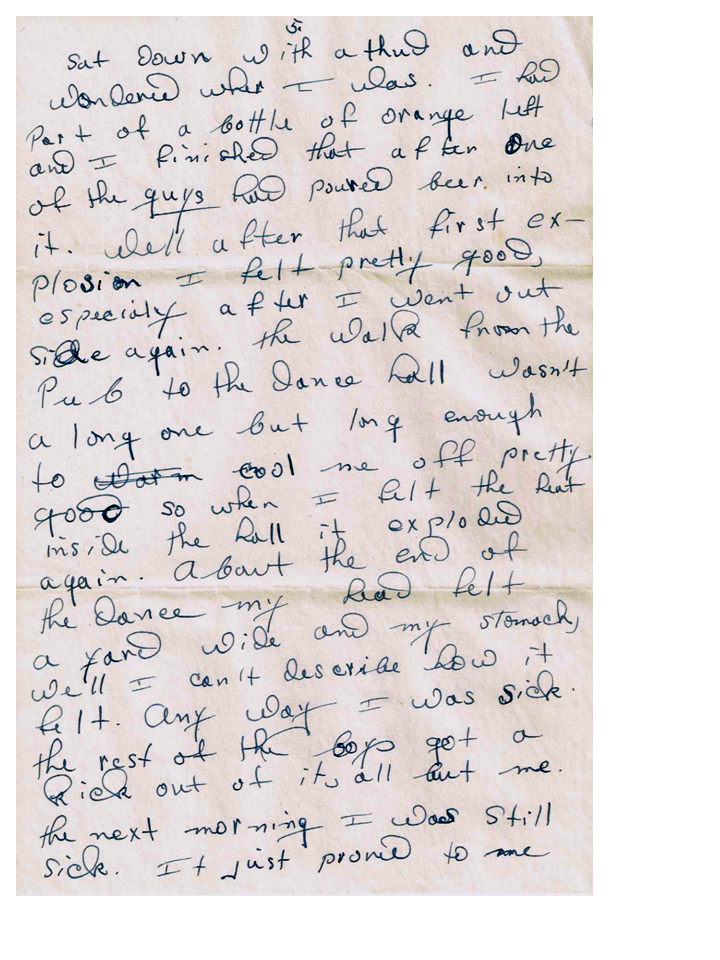 5.
Sat down with a thud and
wondered wher I was. I had
part of a bottle of orange left
and I finished that after one
of the guys had poured beer into
it. Well after that first ex-
plosion I felt pretty good,
especialy after I went out
side again. the walk from the
Pub to the dance hall wasn't
a long one but long enough
to warm cool me off pretty
good so when I felt the heat
inside the hall it exploded
again. About the end of
the dance my head felt
a yard wide and my stomach,
we'll I can't describe how it
felt. Any way I was sick.
the rest of the boys got a
kick out of it, all but me.
the next morning I was still
sick. It just proved to me